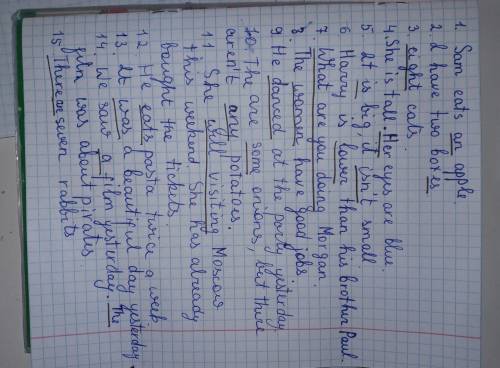 1. Sam eats an apple
2. I have two boxes
3 eight cats.
4. She is tall. Her eyes are blue.
5. It is big, it isn't small
6 Harry is lower than his brother Paul.
7. What are you doing Morgan.
8. The women have good jobs.
9. He danced at the party yesterday.
10. The are some onions, but there
aren't any potatoes.
11 She will visiting Moscow
this weekend She has already
bought the tickets.
12 He eats pasta twice a week
13 It was a beautiful day yesterday
14 We saw a film yesterday. The
film was about pirates
15 There are seven rabbits